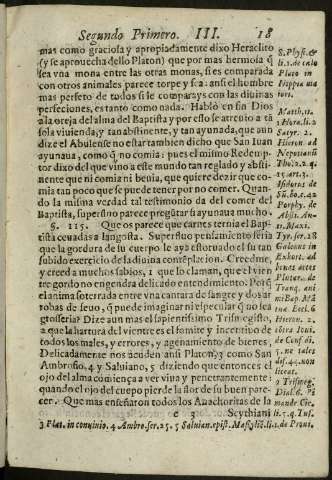 Segundo Primero. III. 18
mas como graciosa y apropiadamente dixo Heraclito
(y se aprouecha dello Platon) que por mas hermosa q̃
sea vna mona entre las otras monas, si es comparada
con otros animales parece torpe y fea: ansi el hombre
mas perfeto de todos si se compara ys con las diuinas
perfeciones, es tanto como nada. Hablò en fin Dios
a la oreja del alma del Baptista y por esso se atreuio a tã
sola viuienda, y tan abstinente, y tan ayunada, que aun
dize el Abulense no estar tambien dicho que San Iuan
ayunaua, como q̃ no comia: pues el mismo Redemp-
tor dixo del que vino a este mundo tan reglado y absti-
nente que ni comia ni beuia, que quiere dezir que co-
mia tan poco que se puede tener por no comer. Quan-
do la misma verdad tal testimonio da del comer del
Baptista, superfluo parece pregũtar si ayunaua mucho.
§. 115. Que os parece que carnes ternia el Bap-
tista ceuadas a langosta. Superfluo pensamiento seria
que la gordura de su cuerpo le aya estoruado el su tan
subido exercicio de la diuina contẽplacion. Creedme,
y creed a muchos sabios, 1 que lo claman, que el vien
tre gordo no engendra delicado entendimiento. Porq̃
el anima soterrada entre vna cantara de sangre y dos ar
robas de seuo, q̃ puede imaginar ni especular q̃ no sea
grosseria? Dize aun mas el sapientissimo Trismegisto,
2 que la hartura del vientre es el fomite y incentiuo de
todos los males, y errores, y agenamiento de bienes.
Delicadamente nos acuden ansi Platon, 3 y como San
Ambrosio, 4 y Saluiano, 5 diziendo que entonces el
ojo del alma comiença a ver viua y penetrantemente:
quando el ojo del cuerpo pierde la flor de su buen pare-
cer. Que mas enseñaron todos los Anachoritas de la
c 3 Scythia ni
3 Plat. in conuiuio. 4 Ambro. ser. 25. 5 Saluian. epist.
8. Physic. &
li. 1. de cælo
Plato in
Hippia ma
iori.
Matth. 11.
1 Hora. li. 2
Satyr. 2.
Hieron. ad
Nepotianũ
Tho. 2. 2. q.
15. art. 3.
Isidorus de
Sũ. bo. c. 42
Porphy. de
Abst. An-
Tyr. ser. 28
Galenus in
Exhort. ad
bonas artes
Plutar. de
Tranq. ani
Hieron. 2.
Dial. 6.